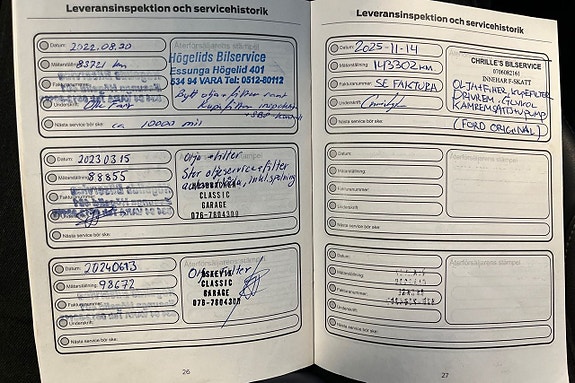 Leveransinspektion och servicehistorik
Datum: 2022.08.30
Mätarställning: 83721 km
Fakturanummer:
Underskrift:
Nästa service bör ske: ca 10000 mil
Återförsäljarens stämpel
Högelids Bilservice
Essunga Högelid 401
534 94 VARA Tel: 0512-80112
Bytt olja + filter samt
Datum: 2023.03.15
Mätarställning: 88855
Fakturanummer:
Underskrift:
Nästa service bör ske:
Olja + filter
Stor oljeservice + filter
automatlåda, inkl. spolning
CLASSIC
GARAGE
076-7804300
Datum: 20240613
Mätarställning: 98672
Underskrift:
Nästa service bör ske:
Olja + filter
CLASSIC
GARAGE
076-7804300
26
Leveransinspektion och servicehistorik
Datum: 2025-11-14
Mätarställning: 143302 km
Fakturanummer: SE FAKTURA
Underskrift:
Nästa service bör ske:
CHRILLE'S BILSERVICE
0706082161
INNEHAR F-SKATT
OLJA+FILTER, KUPEFILTER
DRIVREM, GLYKOL
KAMREMSATS+V.PUMP
(FORD ORIGINAL)
Datum:
Mätarställning:
Fakturanummer:
Underskrift:
Nästa service bör ske:
Återförsäljarens stämpel
Datum:
Mätarställning:
Fakturanummer:
Underskrift:
Nästa service bör ske:
Återförsäljarens stämpel
27